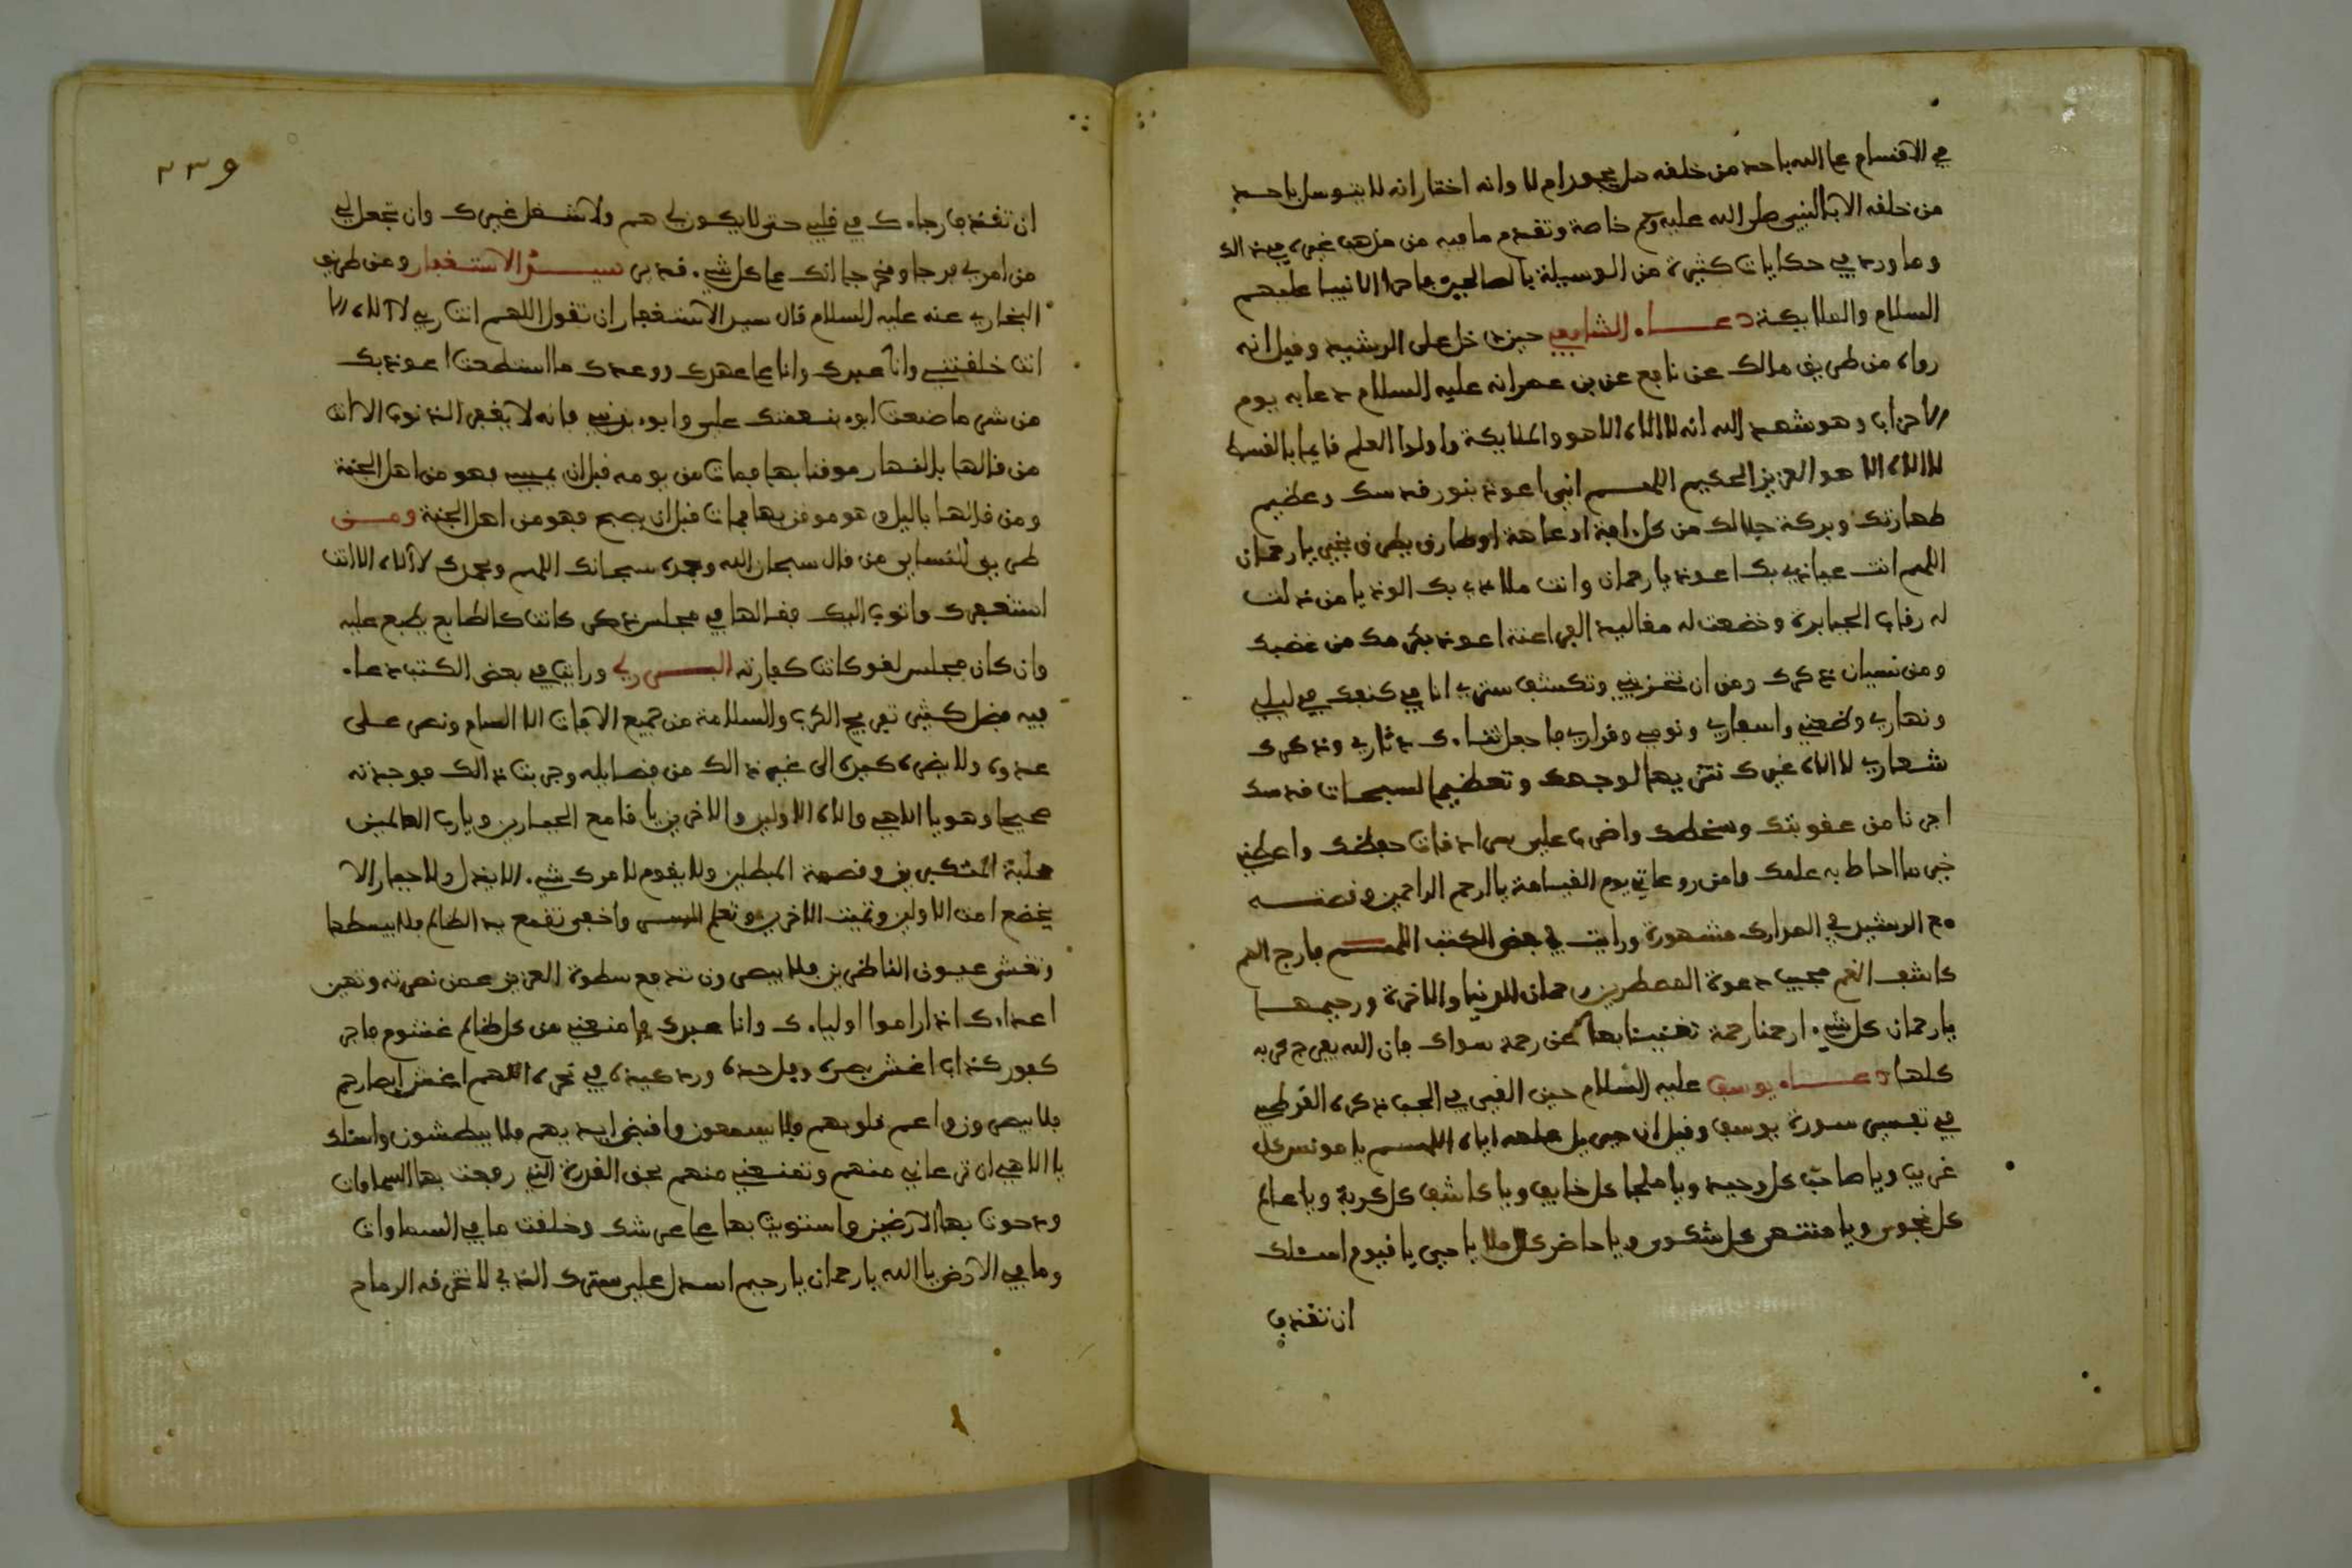 في الاقسام على الله باحد من خلقه هل يجوز ام لا وانه اختار انه لا يتوسل باحد
من خلقه الا بالنبي صلى الله عليه وسلم خاصة وتقدم ما فيه من مذهب غيره في ذالك
وما ورد في حكايات كثيرة من الوسيلة بالصالحين ما حرا الانبيا عليهم
السلام والملايكة دعاء الشافعي حين دخل على الرشيد وقيل انه
رواه من طريق مالك عن نافع عن بن عمر انه عليه السلام دعا به يوم
الاحزاب وهو شهد الله انه لا الاه الا هو والملايكة واولوا العلم قايما بالقسط
لا الاه الا هو العزيز الحكيم اللهم اني اعوذ بنور قدسك وعظيم
طهارتك وبركة جلالك من كل افة او عاهة او طارق يطرق بخير يا رحمان
اللهم انت عياذي بك اعوذ يا رحمان وانت ملاذي بك الوذ يا من ذلت
له رقاب الجبابرة وخضعت له مقاليد الفراعنة اعوذ بكرمك من غضبك
ومن نسيان ذكرك ومن ان تخزيني وتكشف ستري انا في كنفك في ليلي
ونهاري وظعني واسفاري ونومي وقراري فاجعل ثناءك دثاري وذكرك
شعاري لا الاه غيرك تنزيها لوجهك وتعظيما لسبحات قدسك
اجرنا من عقوبتك وسخطك واضرب علي سرادقات حفظك واعطني
خير ما احاط به علمك وامن روعاتي يوم القيامة يا ارحم الراحمين وقصته
مع الرشيد في المدارك مشهورة ورايت في بعض الكتب اللهم فارج الهم
كاشف الغم مجيب دعوة المضطرين رحمان الدنيا والاخرة ورحيمهما
يا رحمان كل شيء ارحمنا رحمة تغنينا بها عن رحمة سواك فان الله يفرج كربه
كلها دعاء يوسف عليه السلام حين القي في الجب ذكره القرطبي
في تفسير سورة يوسف وقيل ان جبريل علمه اياه اللهم يا مونس كل
غريب ويا صاحب كل وحيد ويا ملجا كل خايف ويا كاشف كل كربة ويا عالم
كل نجوى ويا منتهى كل شكوى ويا حاضر كل ملا يا حي يا قيوم اسئلك
ان تقذف
٢٣٩
ان تقذف رجاءك في قلبي حتى لا يكون لي هم ولا شغل غيرك وان تجعل لي
من امري فرجا ومخرجا انك على كل شيء قدير سيد الاستغفار ومن طريق
البخاري عنه عليه السلام قال سيد الاستغفار ان تقول اللهم انت ربي لا الاه الا
انت خلقتني وانا عبدك وانا على عهدك ووعدك ما استطعت اعوذ بك
من شر ما صنعت ابوء بنعمتك علي وابوء بذنبي فانه لا يغفر الذنوب الا انت
من قالها بالنهار موقنا بها فمات من يومه قبل ان يمسي فهو من اهل الجنة
ومن قالها باليل وهو موقن بها فمات قبل ان يصبح فهو من اهل الجنة ومن
طريق النساءي من قال سبحان الله وبحمده سبحانك اللهم وبحمدك لا الاه الا انت
استغفرك واتوب اليك فقالها في مجلس ذكر كانت كالطابع يطبع عليه
وان كان مجلس لغو كانت كفارته البسر لي ورايت في بعض الكتب دعاء
فيه فضل كثير تفريج الكرب والسلامة من جميع الافات الا السام ونصر على
عدوه ولا يضره كيده الى غير ذالك من فضايله وجربت ذالك فوجدته
صحيحا وهو يا الاهي والاه الاولين والاخرين يا قامع الجبارين ويا رب العالمين
مذلة المتكبرين وقصمة المبطلين ولا يقوم لامرك شيء الا يذل ولا جبار الا
يخضع امت الاولين وتميت الاخرين وتعلم السر واخفى تقمع يد الظالم فلا يبسطها
وتغشى عيون الناظرين فلا يبصرون تدفع سطوة العزيز عمن نصرته وتهين
اعداءك اذا راموا اولياءك وانا عبدك فامنعني من كل ظالم غشوم فاجر
كفور كذاب اغش بصره وفل حده ورد كيده في نحره اللهم اغش ابصارهم
فلا يبصرون واعم قلوبهم فلا يسمعون واقبض ايديهم فلا يبطشون واسئلك
يا الاهي ان ترعاني منهم وتمنعني منهم بحق القدرة التي رفعت بها السماوات
ودحوت بها الارضين واستويت بها على عرشك وخلقت ما في السماوات
وما في الارض يا الله يا رحمان يا رحيم اسدل علي سترك الذي لا تخرقه الرماح